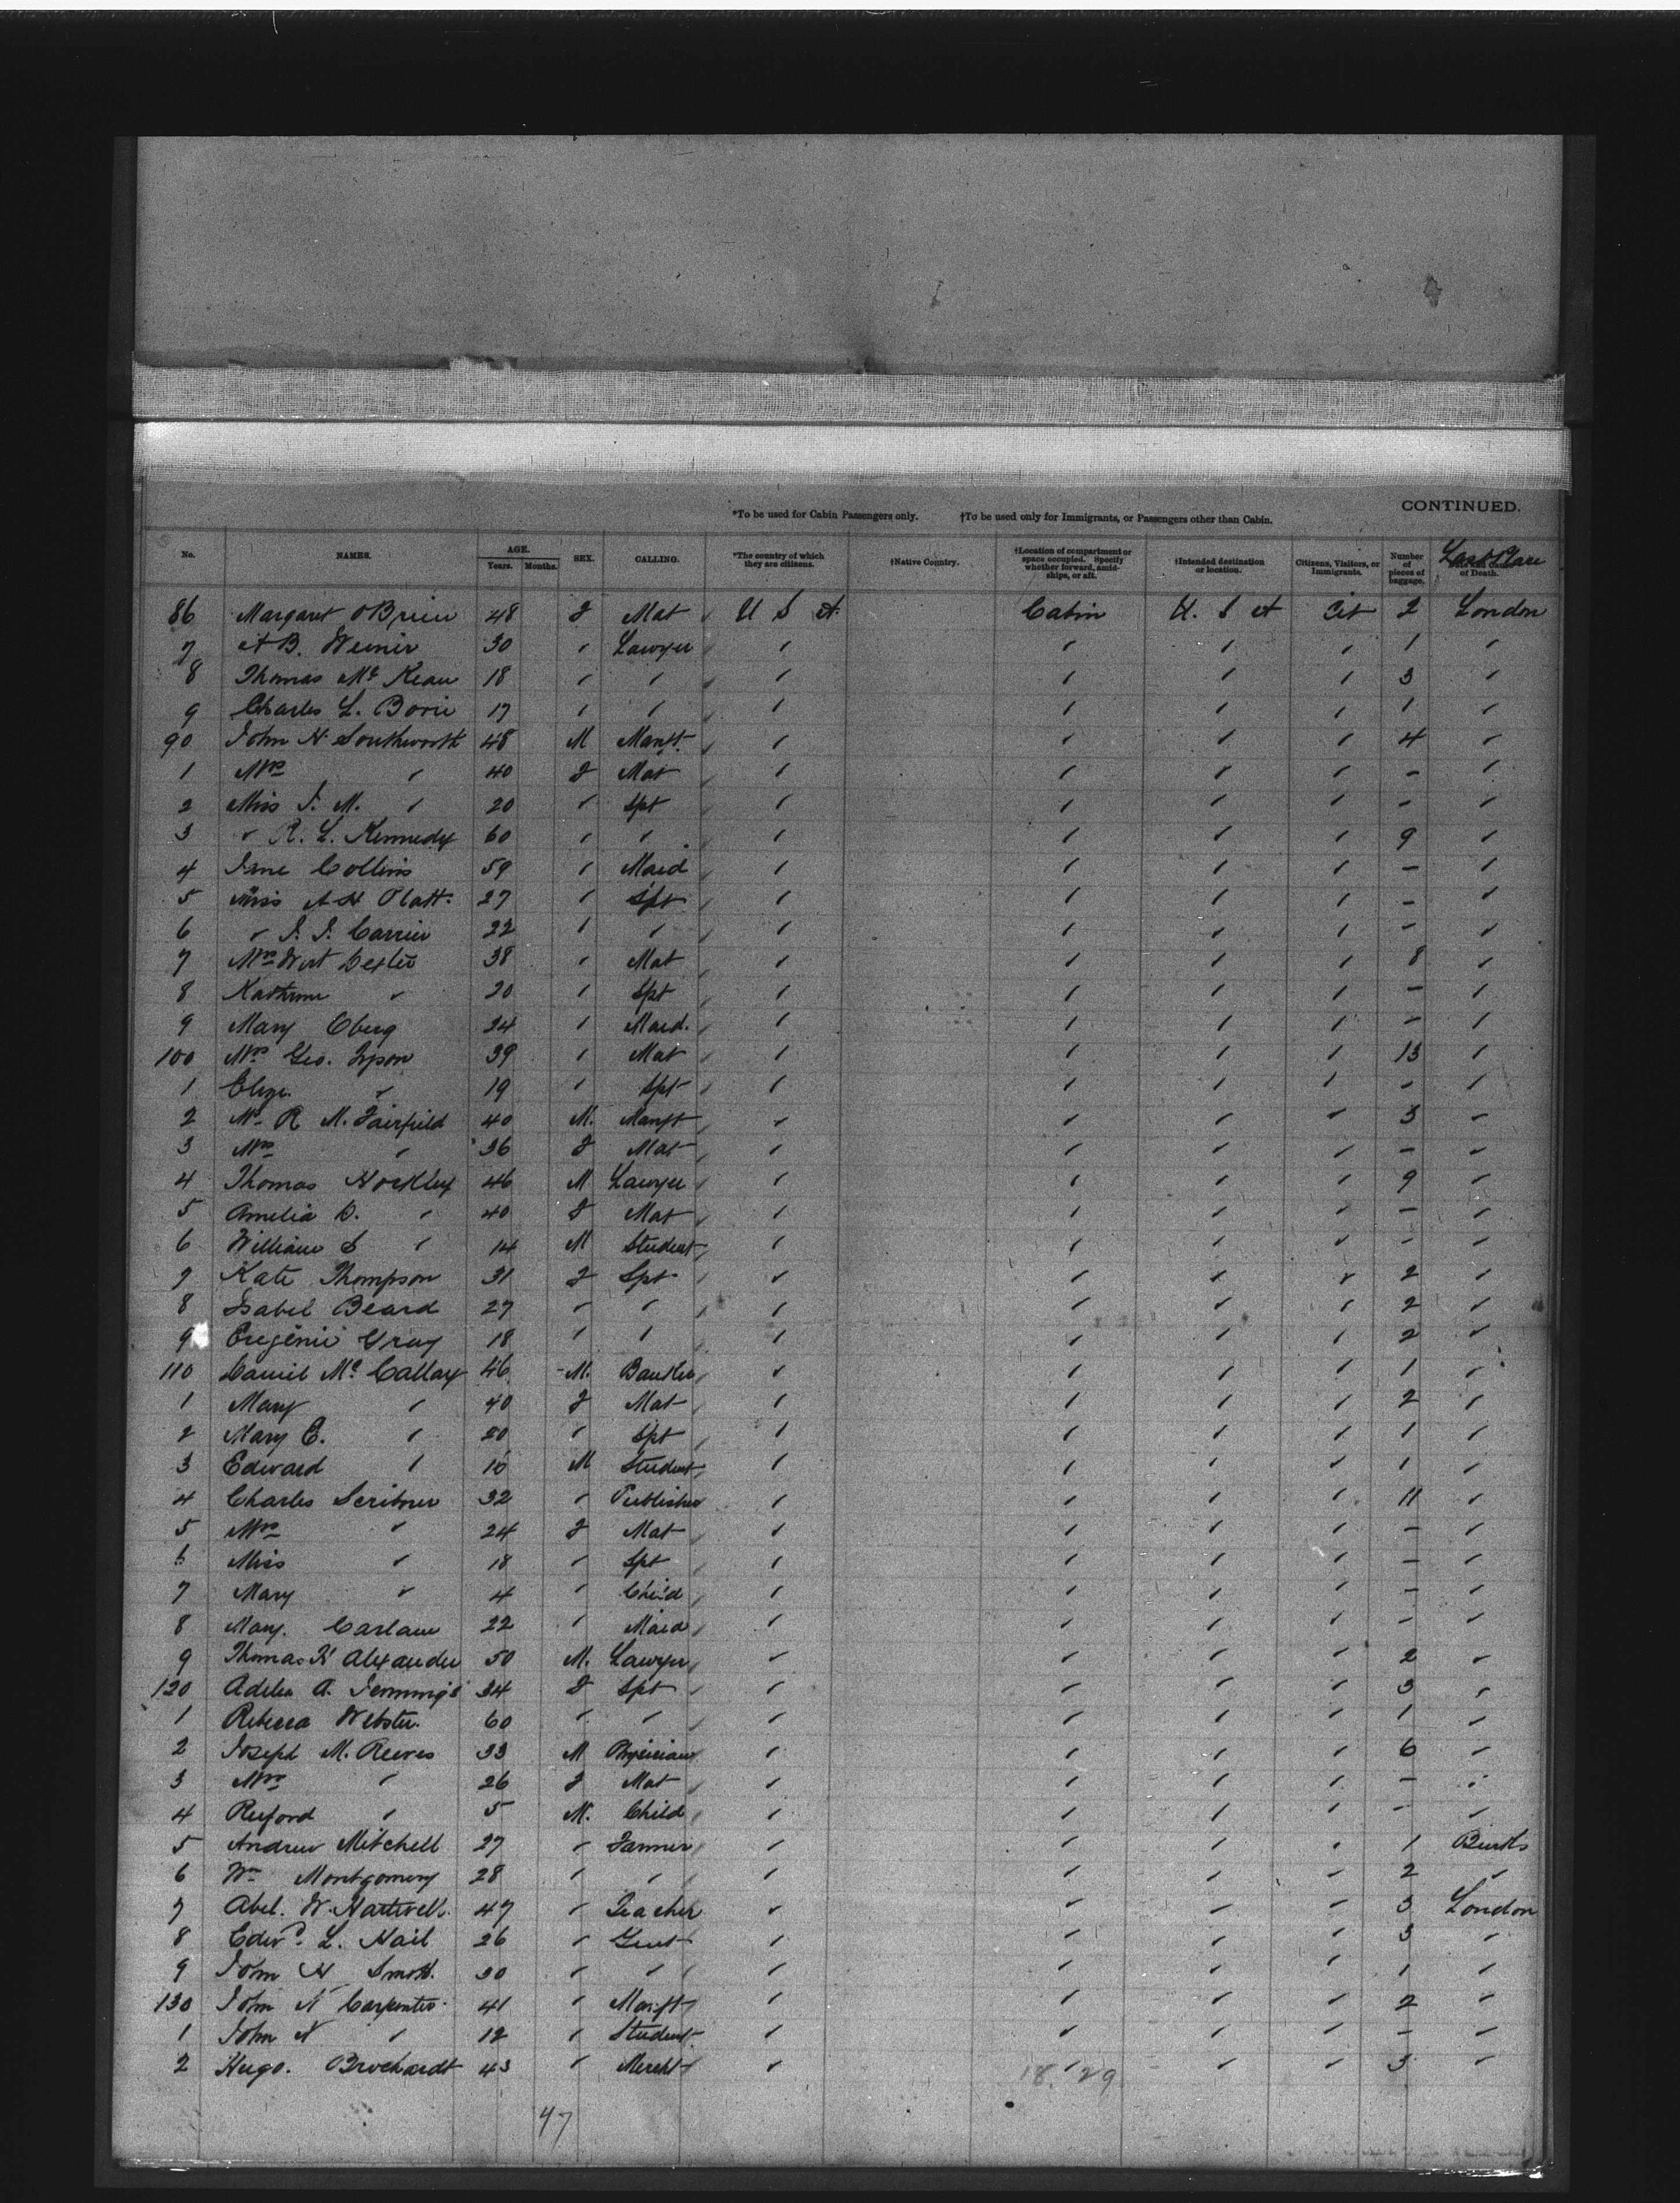 CONTINUED.
*To be used for Cabin Passengers only. †To be used only for Immigrants, or Passengers other than Cabin.
No. NAMES. AGE. Years. Months. SEX. CALLING. *The country of which they are citizens. †Native Country. †Location of compartment or space occupied. Specify whether forward, amidships, or aft. †Intended destination or location. Citizens, Visitors, or Immigrants. Number of pieces of baggage. Last Place of Death.
86 Margaret OBrien 48 F Mat U S A Cabin U. S A Cit 2 London
7 A B. 30 " Lawyer " " " " 1 "
8 Thomas Mc Kean 18 " " " " " " 3 "
9 Charles L. Borie 17 " " " " " " 1 "
90 John H Southworth 48 M Manft. " " " " 4 "
1 Mrs " 40 F Mat " " " " - "
2 Miss I. M. " 20 " Spt " " " " - "
3 " R. L. Kennedy 60 " " " " " " 9 "
4 Jane Collins 59 " Maid " " " " - "
5 Miss A H Platt. 27 " Spt " " " " - "
6 " J. J. Carrier 22 " " " " " " - "
7 Mrs Wirt Dexter 38 " Mat " " " " 8 "
8 Kathrine " 20 " Spt " " " " - "
9 Mary Oberg 24 " Maid. " " " " - "
100 Mrs Geo. 39 " Mat " " " " 13 "
1 Eliza. " 19 " Spt " " " " - "
2 Mr R M. Fairfield 40 M. Manft " " " " 3 "
3 Mrs " 36 F Mat " " " " - "
4 Thomas Hockley 46 M Lawyer " " " " 9 "
5 Amelia D. " 40 F Mat " " " " - "
6 William S " 14 M Student " " " " - "
7 Kate Thompson 31 F Spt " " " " 2 "
8 Isabel Beard 27 " " " " " " 2 "
9 Eugénie Gray 18 " " " " " " 2 "
110 Daniel Mc Callay 46 M. Banker " " " " 1 "
1 Mary " 40 F Mat " " " " 2 "
2 Mary E. " 20 " Spt " " " " 1 "
3 Edward " M Student " " " " 1 "
4 Charles Scribner 32 " Publisher " " " " 11 "
5 Mrs " 24 F Mat " " " " - "
6 Miss " 18 " Spt " " " " - "
7 Mary " 4 " Child " " " " - "
8 Mary. Carlaw 22 " Maid " " " " - "
9 Thomas H Alexander 50 M. Lawyer " " " " 2 "
120 Adelia A. Jennings 34 F Spt " " " " 3 "
1 Rebecca Webster. 60 " " " " " " 1 "
2 Joseph M. Reeves 33 M Physician " " " " 6 "
3 Mrs " 26 F Mat " " " " - "
4 Ruford " 5 M. Child " " " " - "
5 Andrew Mitchell 27 " Farmer " " " " 1
6 Wm Montgomery 28 " " " " " " 2 "
7 Abel. W. Hartwell. 47 " Teacher " " " " 3 London
8 Edwd. L. Hail 26 " Gent " " " " 3 "
9 John H Smott. 30 " " " " " " 1 "
130 John N Carpenter. 41 " Manft " " " " 2 "
1 John N " 12 " Student " " " " - "
2 Hugo. Brochardt 43 " Mercht " " " " 3 "
18. 29
47